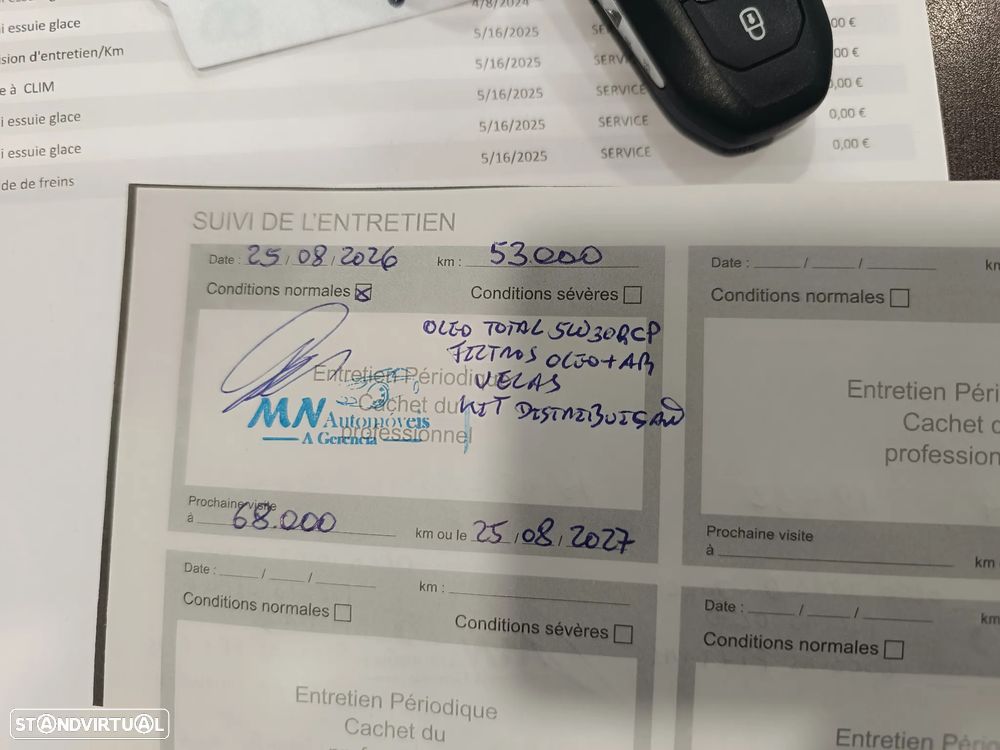 4/8/2024
i essuie glace
5/16/2025
00 €
sion d'entretien/Km
5/16/2025
SERV
00 €
e à CLIM
5/16/2025
SERVICE
,00 €
i essuie glace
5/16/2025
SERVICE
0,00 €
i essuie glace
5/16/2025
SERVICE
0,00 €
de de freins
SUIVI DE L'ENTRETIEN
Date : 25 / 08 / 2026 km : 53.000
Conditions normales Conditions sévères
OLEO TOTAL 5W30RCP
FILTROS OLEO + AR
VELAS
KIT DISTRIBUIÇAO
Entretien Périodique
Cachet du
professionnel
MN Automóveis
A Gerência
Prochaine visite
à 68.000 km ou le 25 / 08 / 2027
Date : / / km
Conditions normales
Entretien Péri
Cachet
profession
Prochaine visite
à km
Date : / / km :
Conditions normales Conditions sévères
Entretien Périodique
Cachet du
Date : / / km
Conditions normales
Entretien Pério
STANDVIRTUAL